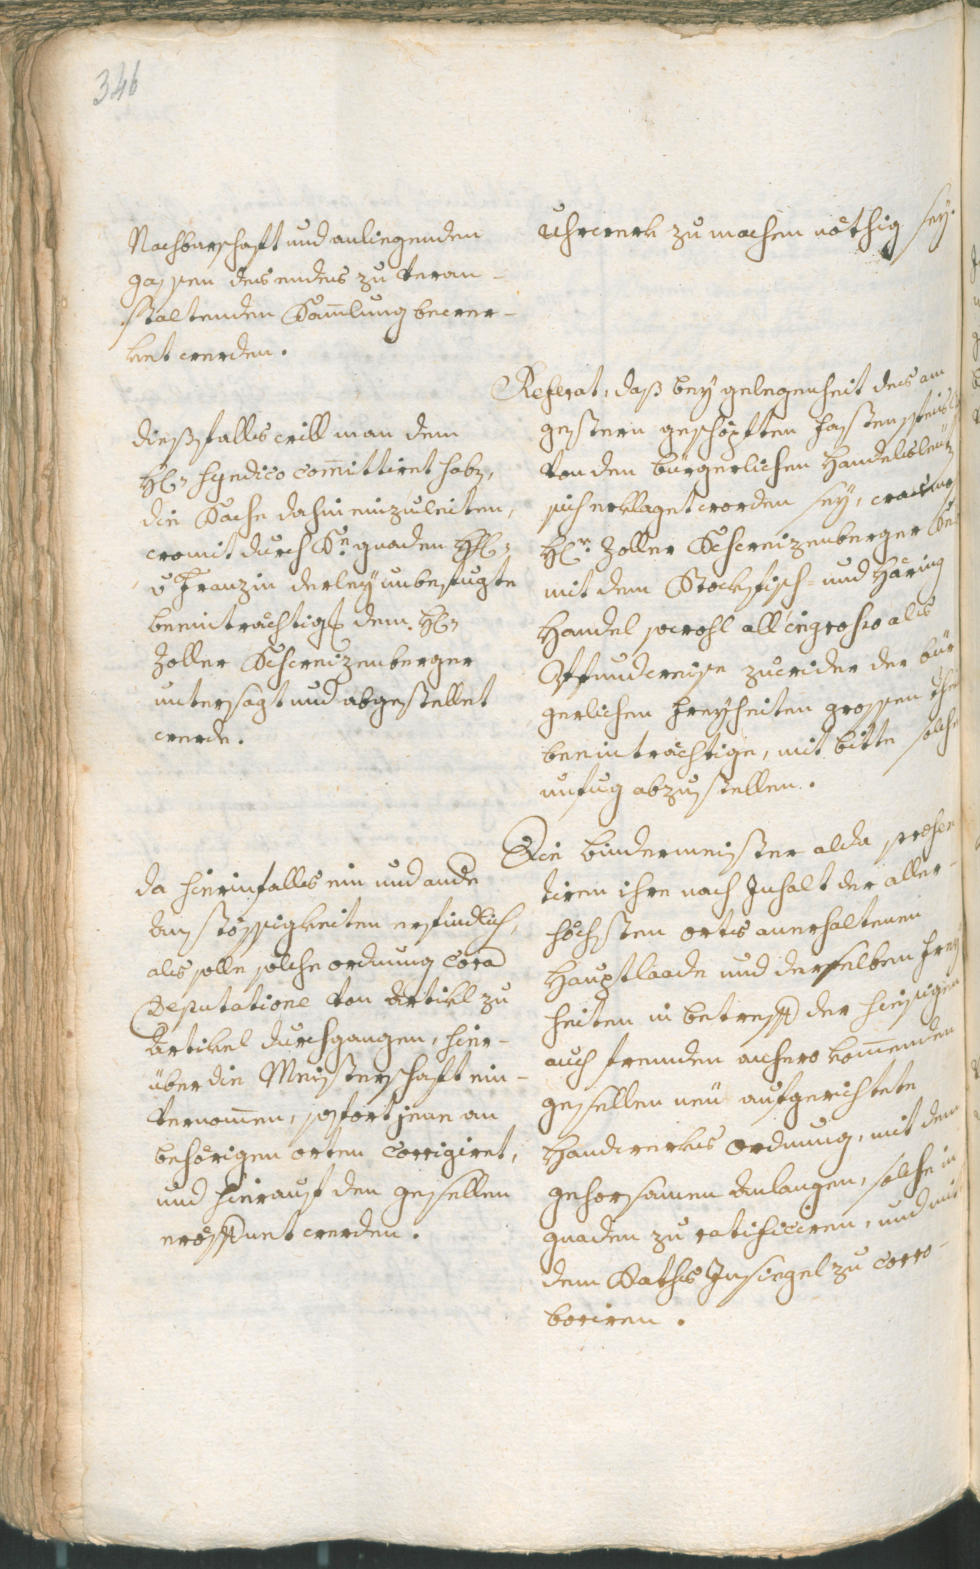 346
Nachbarschaft und anliegenden
gassen des endes zu veran-
staltenden Samlung bewer-
ket werden.
dießfalls will man dem
H: Syndico comittiret habn,
die Sache dahin einzuleiten,
womit durch Sr gnaden
v Franzin derley unbefugte
beeinträchtigt dem H:
Zoller Schweizenberger
untersagt und abgestellet
werde.
da hierinfalls ein und ande
Anstössigkeiten erfindlich,
als solle solche ordnung Cora
Deputatione von Artikl zu
Artikel durchgangen, hier-
über die Meisterschaft ein-
vernomen, sofort jene an
behörigen orten Corrigiret,
und hierauf den gesellen
eröffnet werden.
Uhrwerk zu machen nöthig sey.
Referat, daß bey gelegenheit des am
gestern geschöpften fastenspeis
von den bürgerlichen Handelsleü
sich erklaget worden sey, wasmas
Hr Zoller Schweizenberger
mit dem Stockfisch- und Häring
Handel sowohl all'ingrosso als
Pfundweise zuwider der bür
gerlichen freyheiten grossen
beeinträchtige, mit bitte solche
unfug abzustellen.
Die bindermeister alda
tiren ihre nach Inhalt der aller-
höchsten orts anerhaltenen
Hauptlaade und derselben frey
heiten in betreff der hiesigen
auch fremden anhero komenden
gesellen neü aufgerichtete
Handwerks Ordnung, mit dem
gehorsamen Anlangen, solche in
gnaden zu ratificiren, und mit
dem Raths Insiegel zu Corro-
boriren.